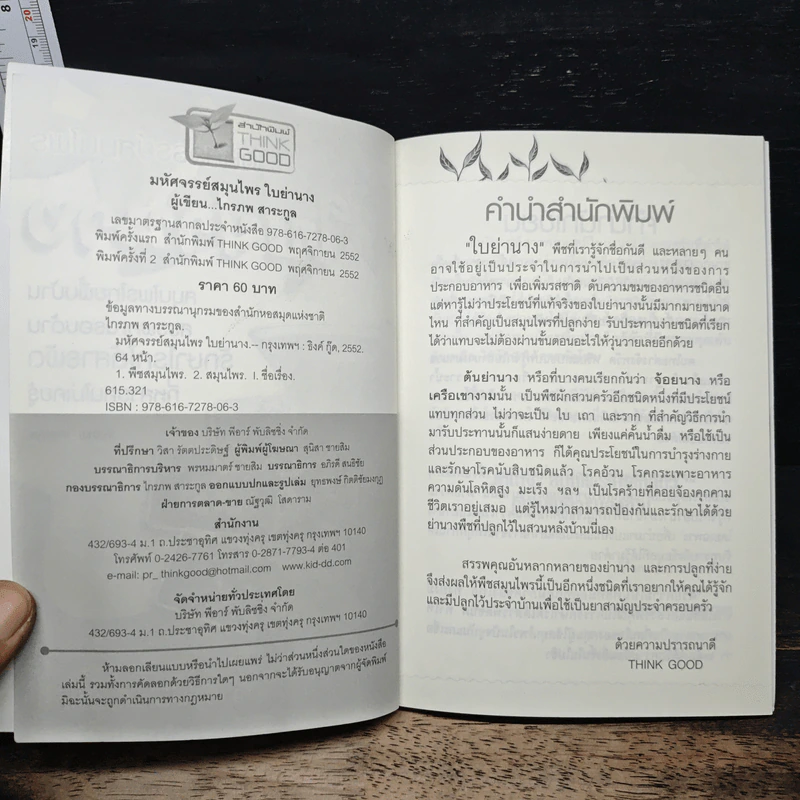 สำนักพิมพ์
THINK
GOOD
มหัศจรรย์สมุนไพร ใบย่านาง
ผู้เขียน...ไกรภพ สาระกูล
เลขมาตรฐานสากลประจำหนังสือ 978-616-7278-06-3
พิมพ์ครั้งแรก สำนักพิมพ์ THINK GOOD พฤศจิกายน 2552
พิมพ์ครั้งที่ 2 สำนักพิมพ์ THINK GOOD พฤศจิกายน 2552
ราคา 60 บาท
ข้อมูลทางบรรณานุกรมของสำนักหอสมุดแห่งชาติ
ไกรภพ สาระกูล.
มหัศจรรย์สมุนไพร ใบย่านาง.-- กรุงเทพฯ : ธิงค์ กู๊ด, 2552.
64 หน้า.
1. พืชสมุนไพร. 2. สมุนไพร. I. ชื่อเรื่อง.
615.321
ISBN : 978-616-7278-06-3
เจ้าของ บริษัท พีอาร์ พับลิชชิ่ง จำกัด
ที่ปรึกษา วิสา รัตตประดิษฐ์ ผู้พิมพ์ผู้โฆษณา สุนิสา ชายสิม
บรรณาธิการบริหาร พรหมมาตร์ ชายสิม บรรณาธิการ อภิรดี สนธิชัย
กองบรรณาธิการ ไกรภพ สาระกูล ออกแบบปกและรูปเล่ม ยุทธพงษ์ กิตติชัยมงกุฎ
ฝ่ายการตลาด-ขาย ณัฐวุฒิ โสดาราม
สำนักงาน
432/693-4 ม.1 ถ.ประชาอุทิศ แขวงทุ่งครุ เขตทุ่งครุ กรุงเทพฯ 10140
โทรศัพท์ 0-2426-7761 โทรสาร 0-2871-7793-4 ต่อ 401
e-mail: pr_ thinkgood@hotmail.com www.kid-dd.com
จัดจำหน่ายทั่วประเทศโดย
บริษัท พีอาร์ พับลิชชิ่ง จำกัด
432/693-4 ม.1 ถ.ประชาอุทิศ แขวงทุ่งครุ เขตทุ่งครุ กรุงเทพฯ 10140
ห้ามลอกเลียนแบบหรือนำไปเผยแพร่ ไม่ว่าส่วนหนึ่งส่วนใดของหนังสือ
เล่มนี้ รวมทั้งการคัดลอกด้วยวิธีการใดๆ นอกจากจะได้รับอนุญาตจากผู้จัดพิมพ์
มิฉะนั้นจะถูกดำเนินการทางกฎหมาย
คำนำสำนักพิมพ์
"ใบย่านาง" พืชที่เรารู้จักชื่อกันดี และหลายๆ คน
อาจใช้อยู่เป็นประจำในการนำไปเป็นส่วนหนึ่งของการ
ประกอบอาหาร เพื่อเพิ่มรสชาติ ดับความขมของอาหารชนิดอื่น
แต่หารู้ไม่ว่าประโยชน์ที่แท้จริงของใบย่านางนั้นมีมากมายขนาด
ไหน ที่สำคัญเป็นสมุนไพรที่ปลูกง่าย รับประทานง่ายชนิดที่เรียก
ได้ว่าแทบจะไม่ต้องผ่านขั้นตอนอะไรให้วุ่นวายเลยอีกด้วย
ต้นย่านาง หรือที่บางคนเรียกกันว่า จ้อยนาง หรือ
เครือเขางามนั้น เป็นพืชผักสวนครัวอีกชนิดหนึ่งที่มีประโยชน์
แทบทุกส่วน ไม่ว่าจะเป็น ใบ เถา และราก ที่สำคัญวิธีการนำ
มารับประทานนั้นก็แสนง่ายดาย เพียงแค่คั้นน้ำดื่ม หรือใช้เป็น
ส่วนประกอบของอาหาร ก็ได้คุณประโยชน์ในการบำรุงร่างกาย
และรักษาโรคนับสิบชนิดแล้ว โรคอ้วน โรคกระเพาะอาหาร
ความดันโลหิตสูง มะเร็ง ฯลฯ เป็นโรคร้ายที่คอยจ้องคุกคาม
ชีวิตเราอยู่เสมอ แต่รู้ไหมว่าสามารถป้องกันและรักษาได้ด้วย
ย่านางพืชที่ปลูกไว้ในสวนหลังบ้านนี่เอง
สรรพคุณอันหลากหลายของย่านาง และการปลูกที่ง่าย
จึงส่งผลให้พืชสมุนไพรนี้เป็นอีกหนึ่งชนิดที่เราอยากให้คุณได้รู้จัก
และมีปลูกไว้ประจำบ้านเพื่อใช้เป็นยาสามัญประจำครอบครัว
ด้วยความปรารถนาดี
THINK GOOD
8
19
20